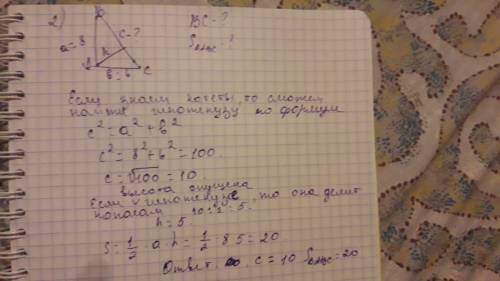 2)
B
a=8
c-?
h
A
b=6
C
BC-?
S
-?
Если знаем катеты, то сможем
найти гипотенузу по формуле
c² = a² + b²
c² = 8² + 6² = 100
c = √100 = 10.
высота опущена
Если к гипотенузе, то она делит
пополам 10:2=5.
h = 5
S = 1/2 a h = 1/2 8 5 = 20
Ответ: c = 10 S = 20